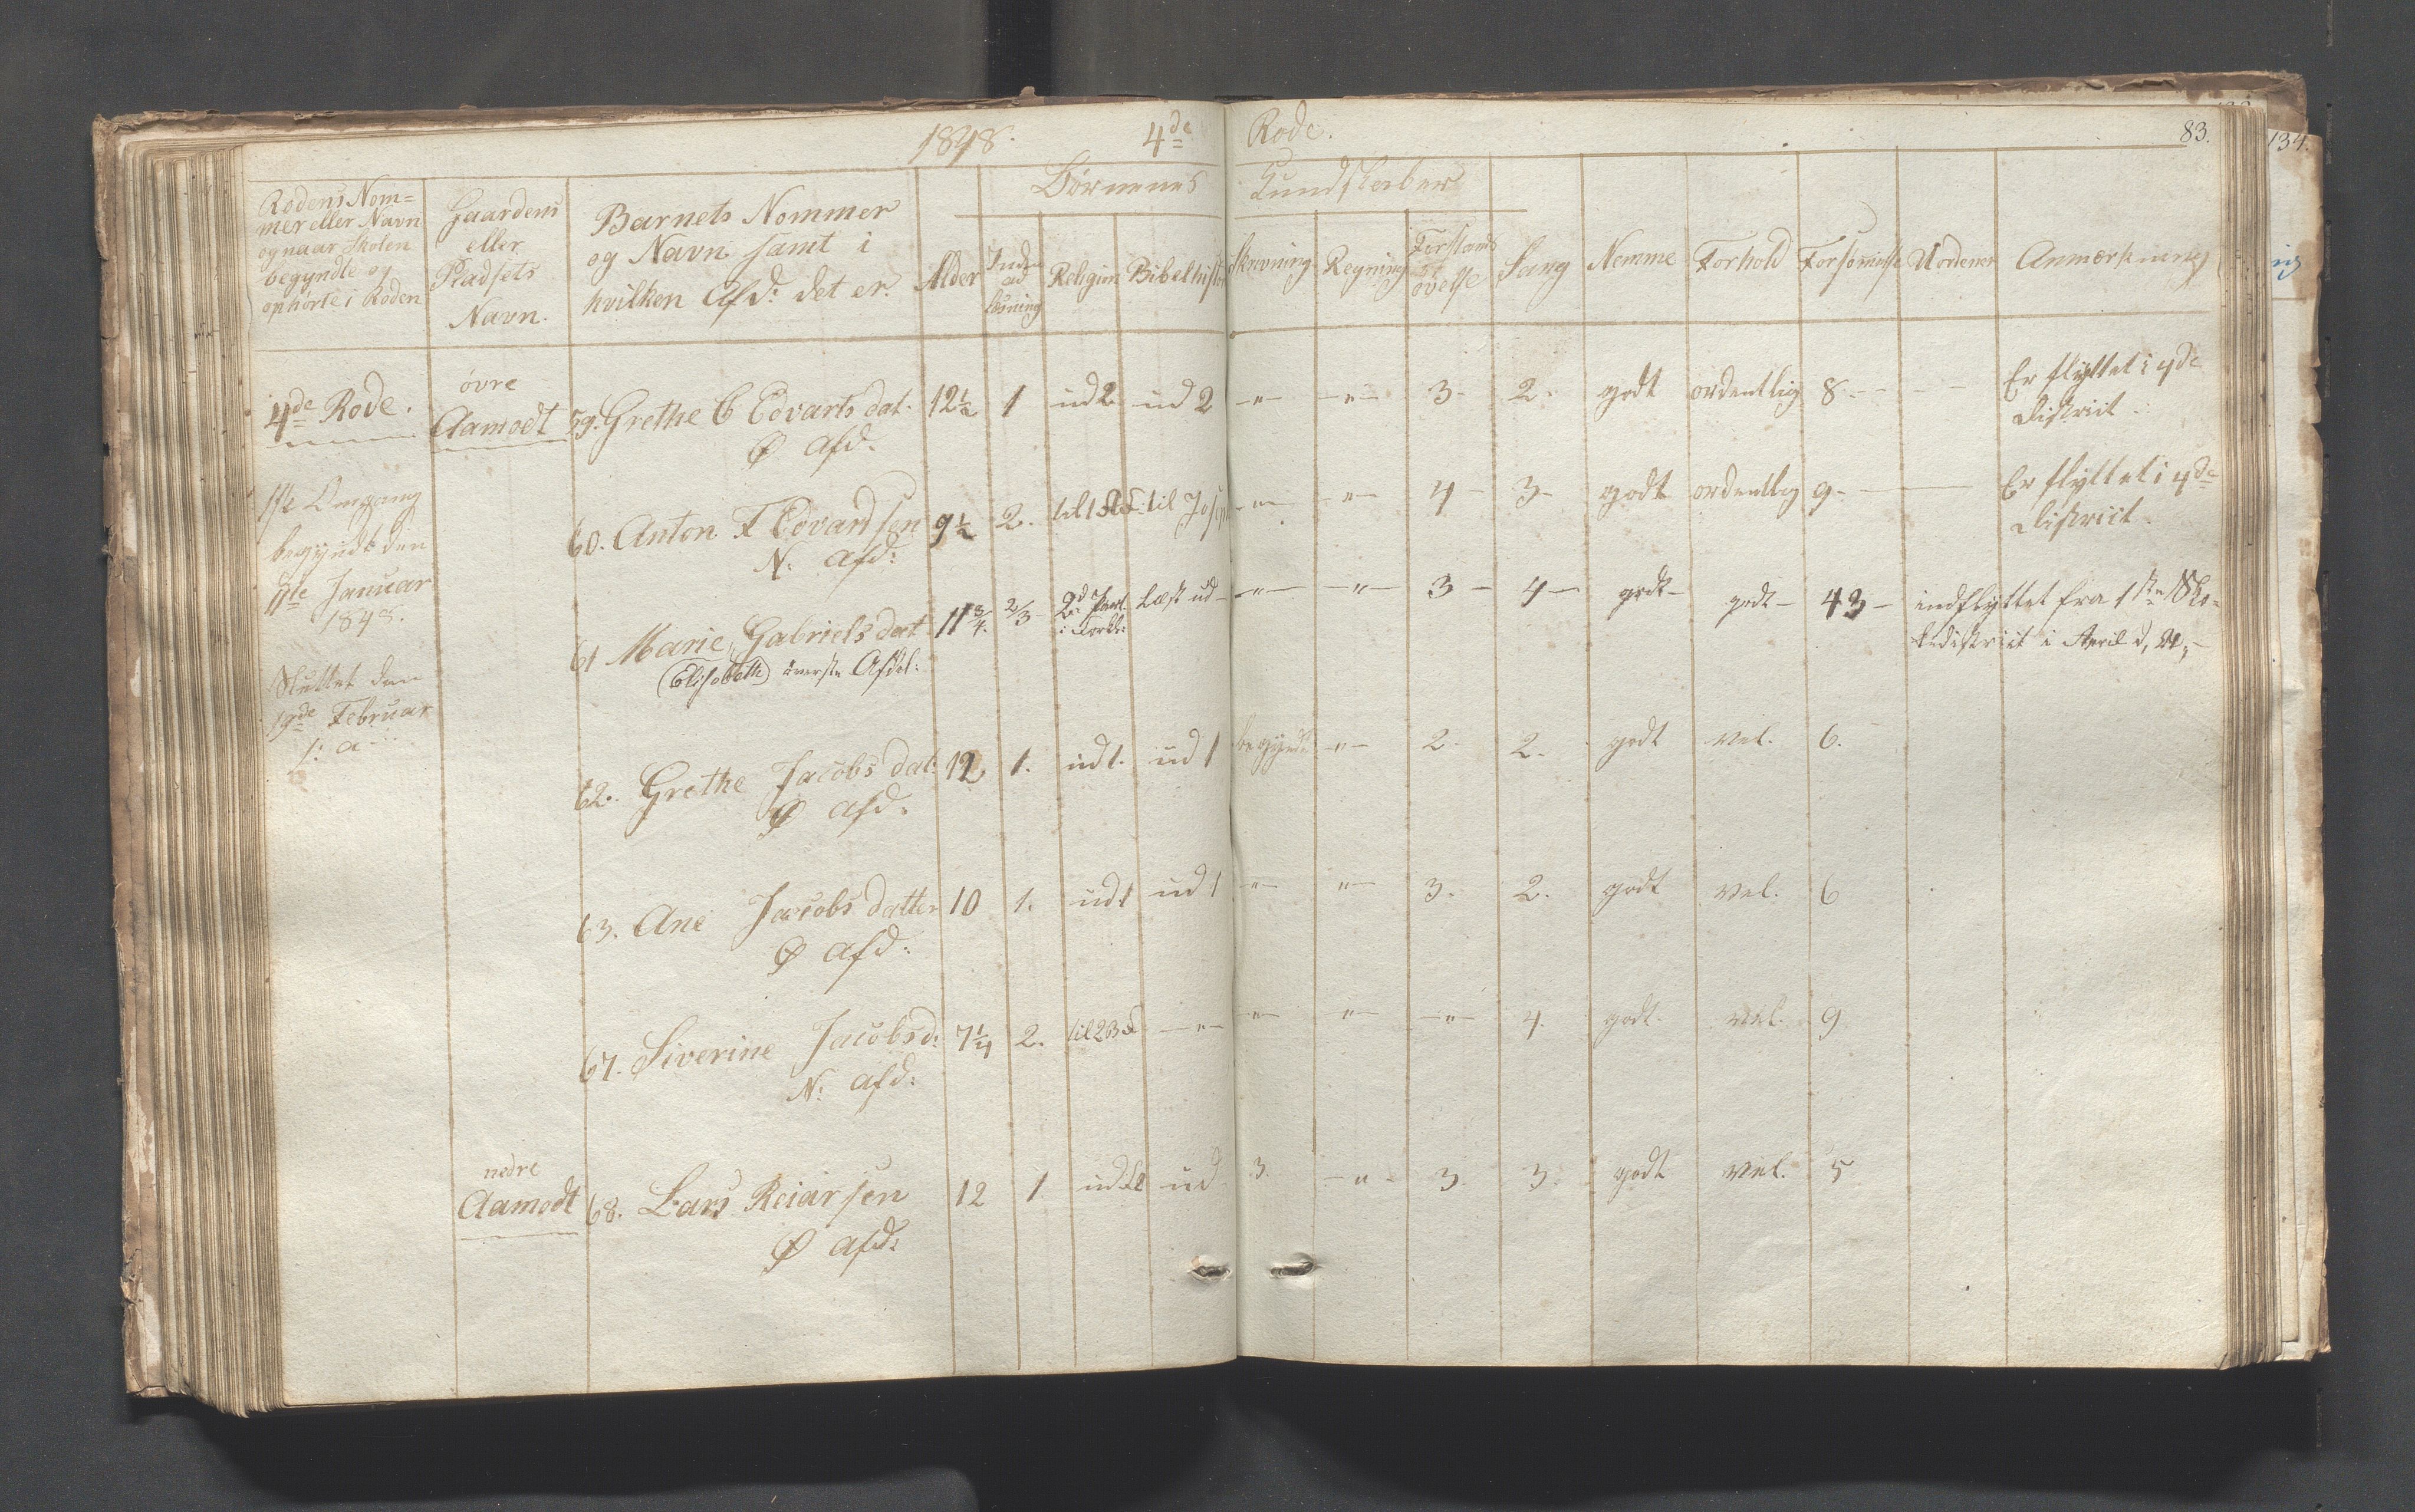 1848. 4de Rode. 83.
134.
Børnenes Kundskaber
Rodens Nom=
mer eller Navn
og naar Skolen
begyndte og
ophørte i Roden
Gaardens
eller
Pladsets
Navn.
Barnets Nommer
og Navn samt i
hvilken Afd: det er.
Alder
læsning
Religion
Bibelhist
Skrivning
Regning
Forstands
øvelse
Sang
Nemme
Forhold
Forsømmelse
Uordener
Anmærkning
4de Rode.
øvre
Aamodt
59. Grethe C Edvarts dat. 12½ 1 ud 2 ud 2 -"- -"- 3- 2. godt ordentlig 8.-- -- Er flyttet i 4de
Ø afd. District.
1ste Omgang
begyndt den
11te Januar
1848.
60. Anton F Edvardsen 9½ 2. til Josep -"- -"- 4- 3- godt ordentlig 9.- — Er flyttet i 4de
N. afd: District.
61 Marie, Gabriels dat 11¾. 2/3- 2d Part læst ud- -"- -"- 3- 4- godt- godt- 43- indflyttet fra 1ste Sko-
(Elisabeth) øverste Afdel: i April
Sluttet den
19de Februar
s: a.
62. Grethe Jacobs dat. 12 1. ud 1. ud 1 begyndt -"- 2. 2. godt vel. 6.
Ø afd.
63. Ane Jacobs datter 10 1. ud 1 ud 1 -"- "- 3. 2. godt vel. 6
Ø afd:
67. Siverine Jacobs d: 7¼ 2. -"- -"- "- -"- 4. godt. vel. 9
N: afd:
nedre
Aamodt 68. Lars Reiarsen 12 1 ud 3. -"- 3. 3. godt vel. 5
Ø afd: